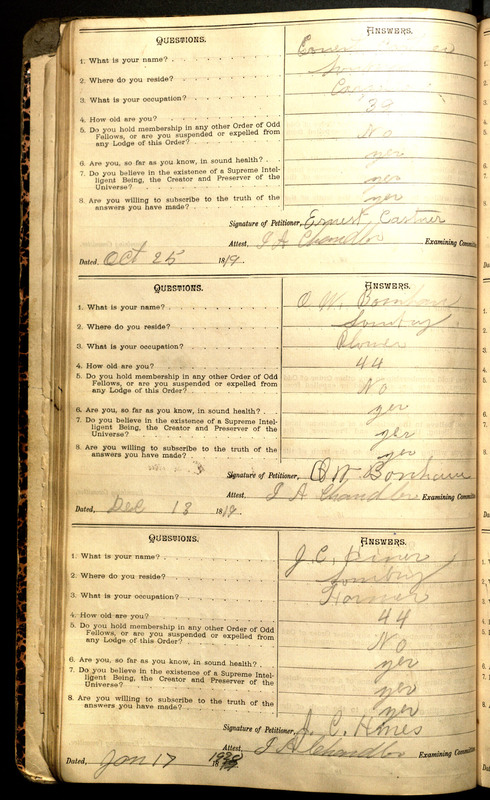 QUESTIONS. ANSWERS.
1. What is your name?
2. Where do you reside?
3. What is your occupation?
4. How old are you? 39
5. Do you hold membership in any other Order of Odd
Fellows, or are you suspended or expelled from
any Lodge of this Order? No
6. Are you, so far as you know, in sound health? yer
7. Do you believe in the existence of a Supreme Intel-
ligent Being, the Creator and Preserver of the
Universe? yer
8. Are you willing to subscribe to the truth of the
answers you have made? yer
Signature of Petitioner, Ernest Castner
Attest, J A Chandler Examining Committ
Dated, Oct 25 1819.
QUESTIONS. ANSWERS.
1. What is your name? O. W. Bonham
2. Where do you reside?
3. What is your occupation?
4. How old are you? 44
5. Do you hold membership in any other Order of Odd
Fellows, or are you suspended or expelled from
any Lodge of this Order? No
6. Are you, so far as you know, in sound health? yer
7. Do you believe in the existence of a Supreme Intel-
ligent Being, the Creator and Preserver of the
Universe? yer
8. Are you willing to subscribe to the truth of the
answers you have made? yer
Signature of Petitioner, O W Bonham
Attest, J A Chandler Examining Committ
Dated, Dec 13 1819.
QUESTIONS. ANSWERS.
1. What is your name? J. C.
2. Where do you reside?
3. What is your occupation? Farmer
4. How old are you? 44
5. Do you hold membership in any other Order of Odd
Fellows, or are you suspended or expelled from
any Lodge of this Order? No
6. Are you, so far as you know, in sound health? yer
7. Do you believe in the existence of a Supreme Intel-
ligent Being, the Creator and Preserver of the
Universe? yer
8. Are you willing to subscribe to the truth of the
answers you have made? yer
Signature of Petitioner, J. C. Hines
Attest, J A Chandler Examining Committ
Dated, Jan 17